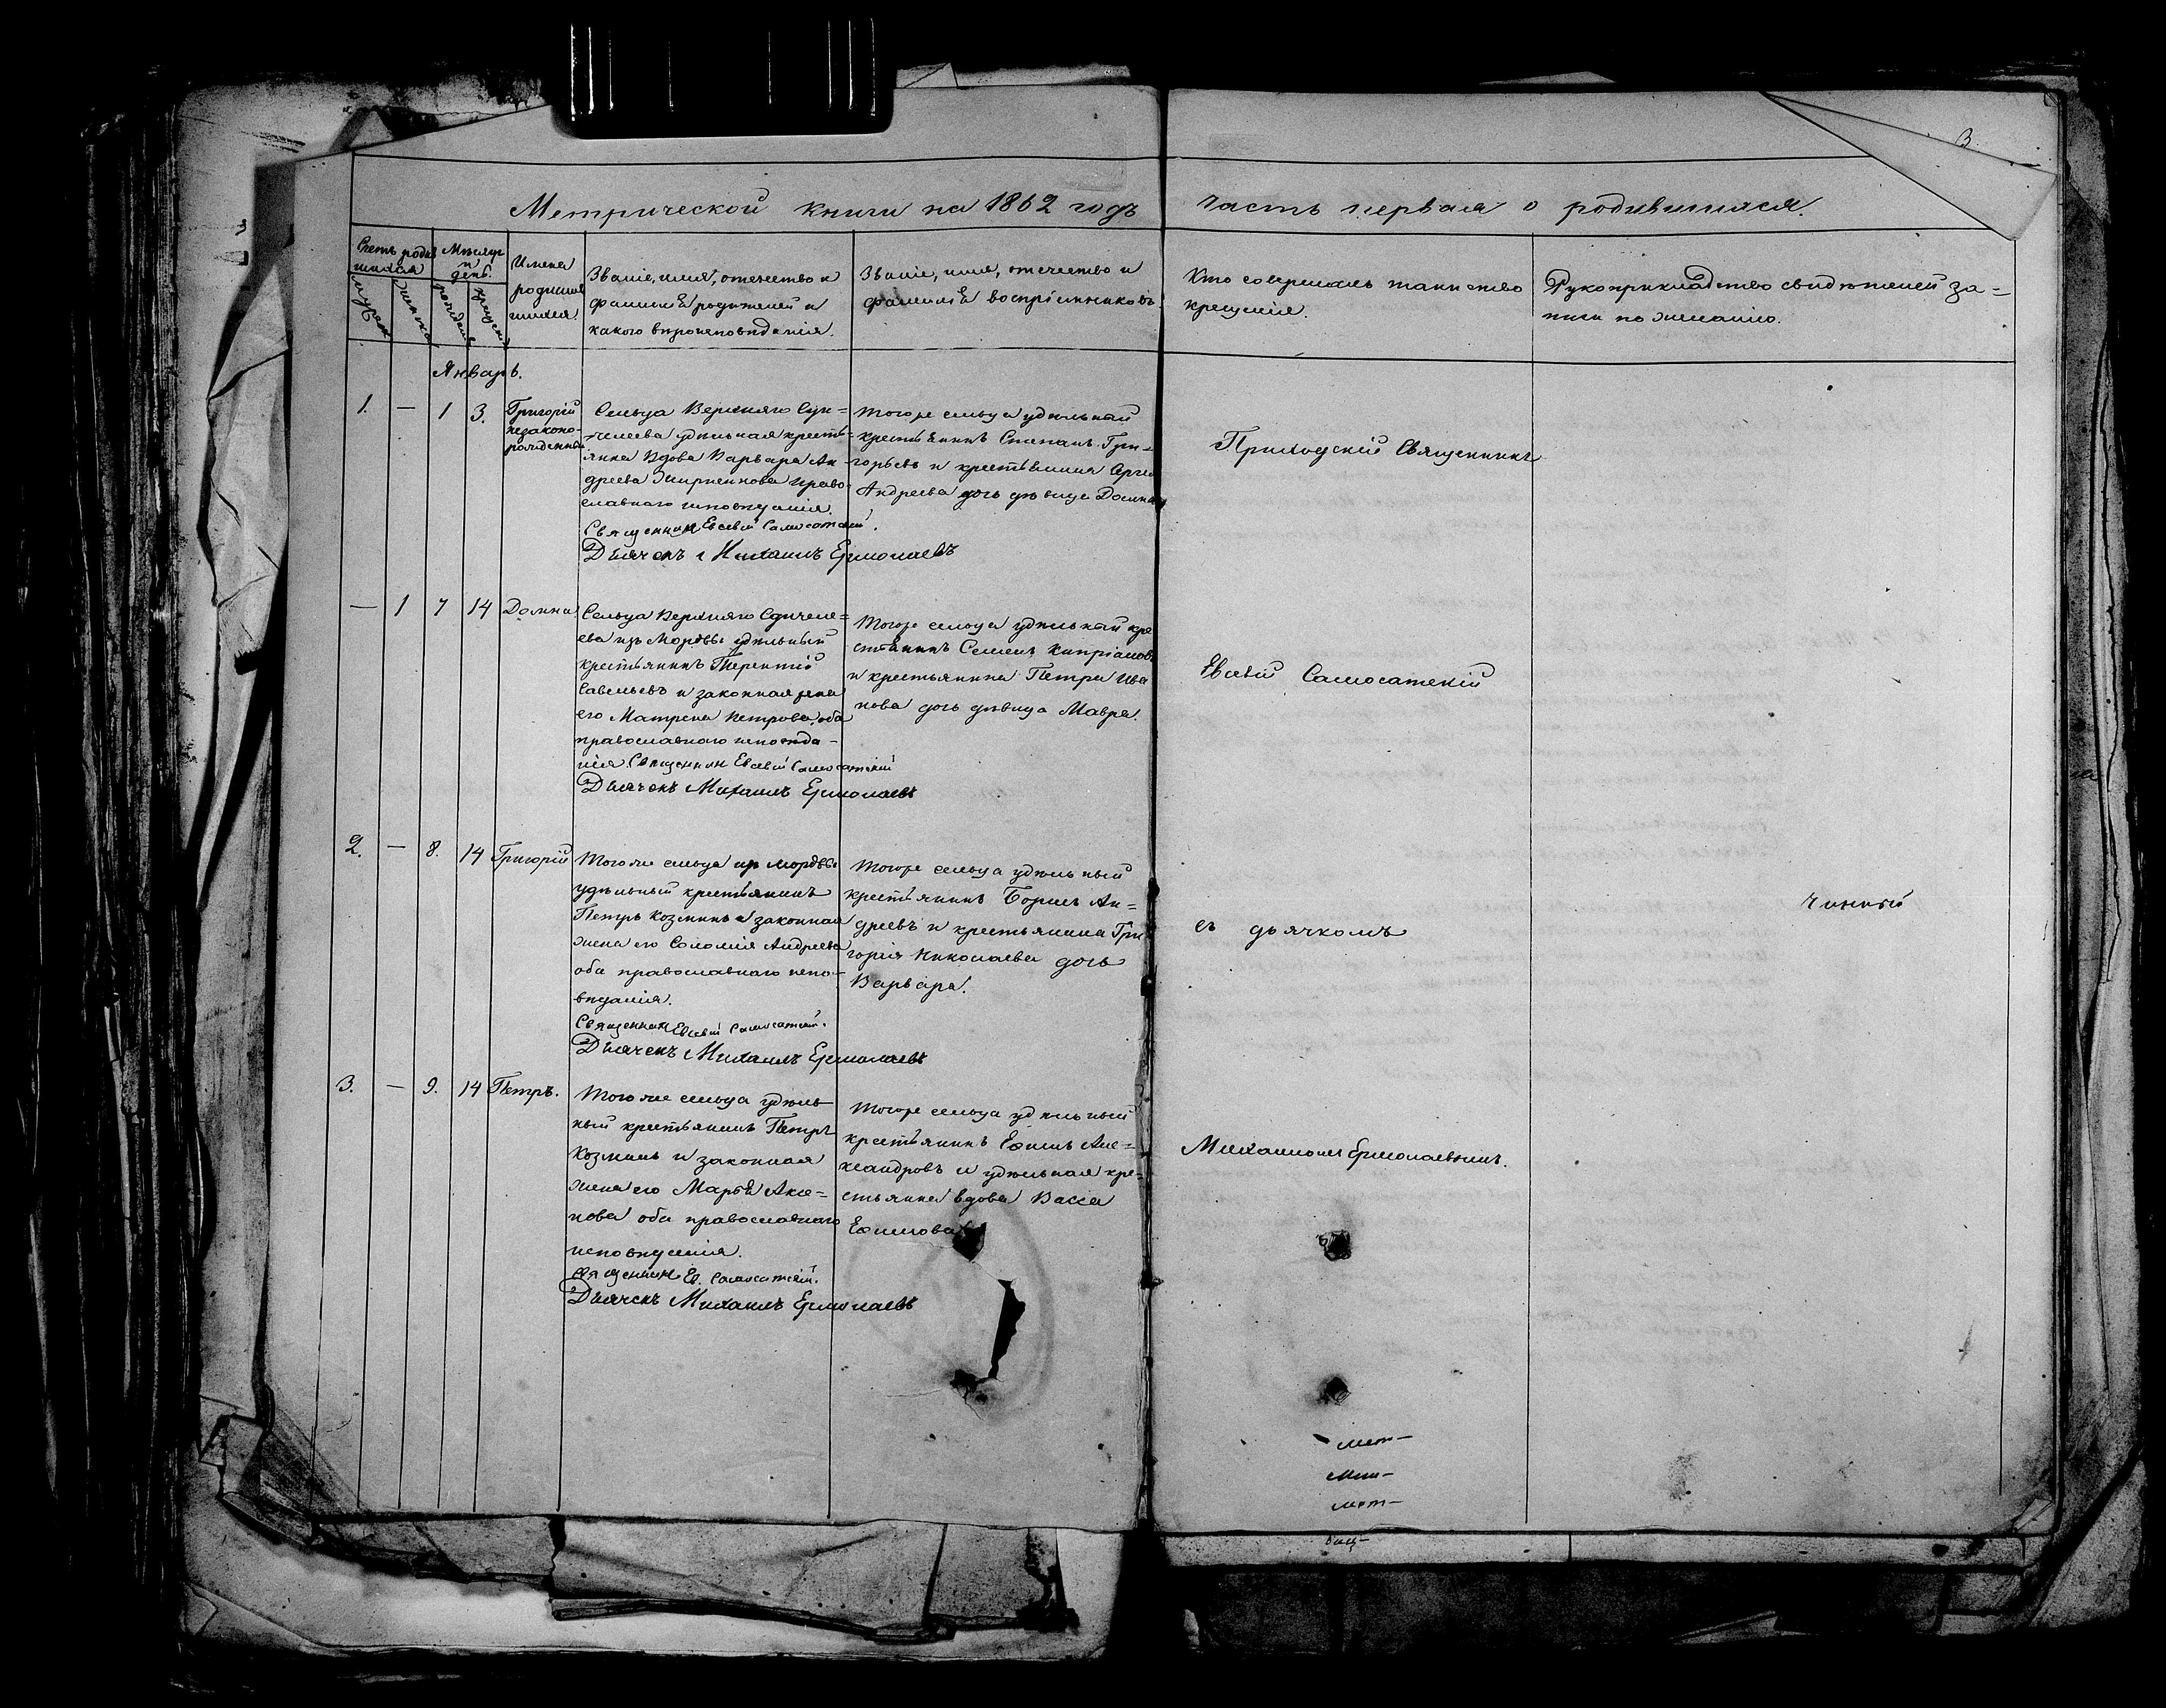 3.
Метрической книги на 1862 годъ часть первая о родившихся.
Счетъ родив
шихся
Мѣсяцъ
и
день.
Имена
родив
шихся.
Званіе, имя, отчество и
фамилія родителей и
какого вѣроисповѣданія.
Званіе, имя, отчество и
фамилія воспріемниковъ
Кто совершалъ таинство
крещенія.
Рукоприкладство свидѣтелей за-
писи по желанію.
мужеск
женска
рожденія
крещенія
Январь.
1. — 1 3. Григорій
незаконо-
рожденный
Сельца Верхняго
удѣльная кресть-
янка Вдова Варвара Ан
дреева право
славнаго исповѣданія.
Священникъ Евсевій Самосатскій.
Дьячекъ Михаилъ Ермолаевъ
Тогоже сельца удѣльный
крестьянинъ Степанъ Гри-
горьевъ и крестьянина Сергея
Андреева дочь дѣвица Домна
Приходскій Священникъ
— 1 7 14 Домна
Сельца Верхняго
ева изъ Мордвы удѣльный
крестьянинъ Терентій
Савельевъ и законная жена
его Матрена Петрова, оба
православнаго исповѣда-
нія. Священникъ Евсевій Самосатскій
Дьячекъ Михаилъ Ермолаевъ
Тогоже сельца удѣльный кре
стьянинъ Семенъ Кипріановъ
и крестьянина Петра Ива
нова дочь дѣвица Мавра.
Евсевій Самосатскій
2. — 8. 14 Григорій
Тогоже сельца из мордвы
удѣльный крестьянинъ
Петръ Козминъ и законная
жена его Соломія Андреева
оба православнаго испо-
вѣданія.
Священникъ Евсевій Самосатскій.
Дьячекъ Михаилъ Ермолаевъ
Тогоже сельца удѣльный
крестьянинъ Борисъ Ан-
дреевъ и крестьянина Гри
горія Николаева дочь
Варвара.
съ дьячкомъ
чинный
3. — 9. 14 Петръ.
Тогоже сельца удѣль
ный крестьянинъ Петръ
Козминъ и законная
жена его Марья
нова оба православнаго
исповѣданія.
Священникъ Ев. Самосатскій.
Дьячекъ Михаилъ Ермолаевъ
Тогоже сельца удѣльный
крестьянинъ Ефимъ Але-
ксандровъ и удѣльная кре-
стьянка вдова Васса
Ефимова
Михаиломъ Ермолаевымъ.
мет-
мет-